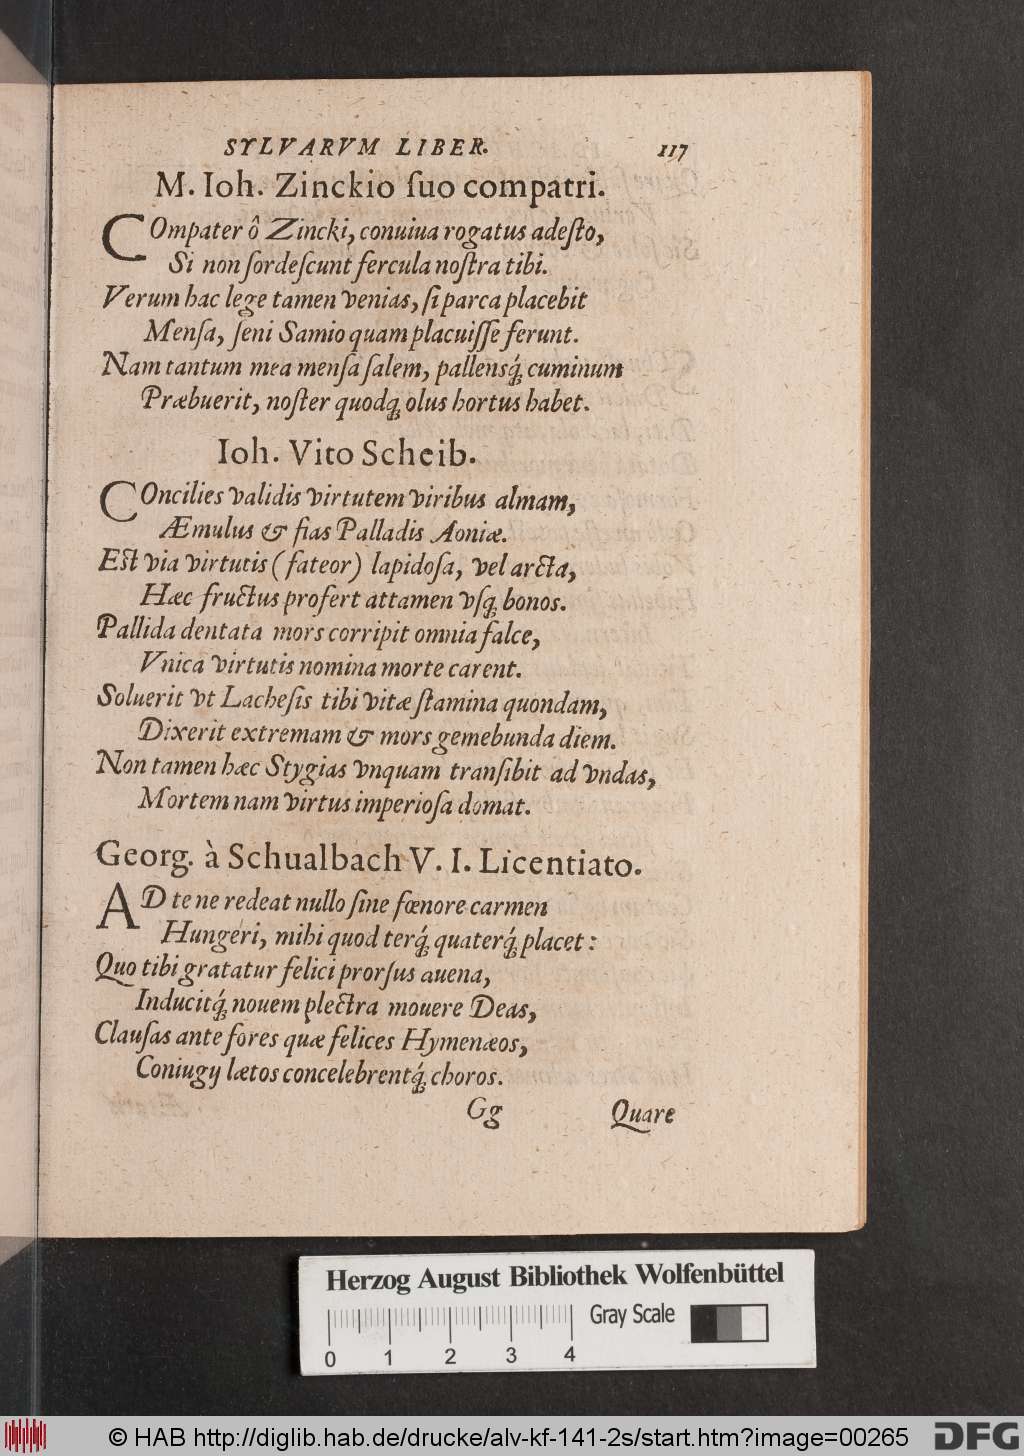 SYLVARVM LIBER. 117
M. Ioh. Zinckio ſuo compatri.
COmpater ô Zincki, conuiua rogatus adeſto,
Si non ſordeſcunt fercula noſtra tibi.
Verum hac lege tamen venias, ſi parca placebit
Menſa, ſeni Samio quam placuiſſe ferunt.
Nam tantum mea menſa ſalem, pallensq́; cuminum
Præbuerit, noſter quodq; olus hortus habet.
Ioh. Vito Scheib.
COncilies validis virtutem viribus almam,
Æmulus & fias Palladis Aoniæ.
Eſt via virtutis (fateor) lapidoſa, vel arcta,
Hæc fructus profert attamen vſq; bonos.
Pallida dentata mors corripit omnia falce,
Vnica virtutis nomina morte carent.
Soluerit vt Lacheſis tibi vitæ ſtamina quondam,
Dixerit extremam & mors gemebunda diem.
Non tamen hæc Stygias vnquam tranſibit ad vndas,
Mortem nam virtus imperioſa domat.
Georg. à Schualbach V. I. Licentiato.
AD te ne redeat nullo ſine fœnore carmen
Hungeri, mihi quod terq́; quaterq́; placet:
Quo tibi gratatur felici prorſus auena,
Inducitq́; nouem plectra mouere Deas,
Clauſas ante fores quæ felices Hymenæos,
Coniugij lætos concelebrentq́; choros.
Gg Quare
Herzog August Bibliothek Wolfenbüttel
Gray Scale
0 1 2 3 4
© HAB http://diglib.hab.de/drucke/alv-kf-141-2s/start.htm?image=00265
DFG